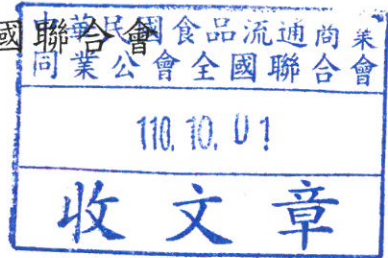 國聯合會
中華民國食品流通商業
同業公會全國聯合會
110. 10. 01
收文章